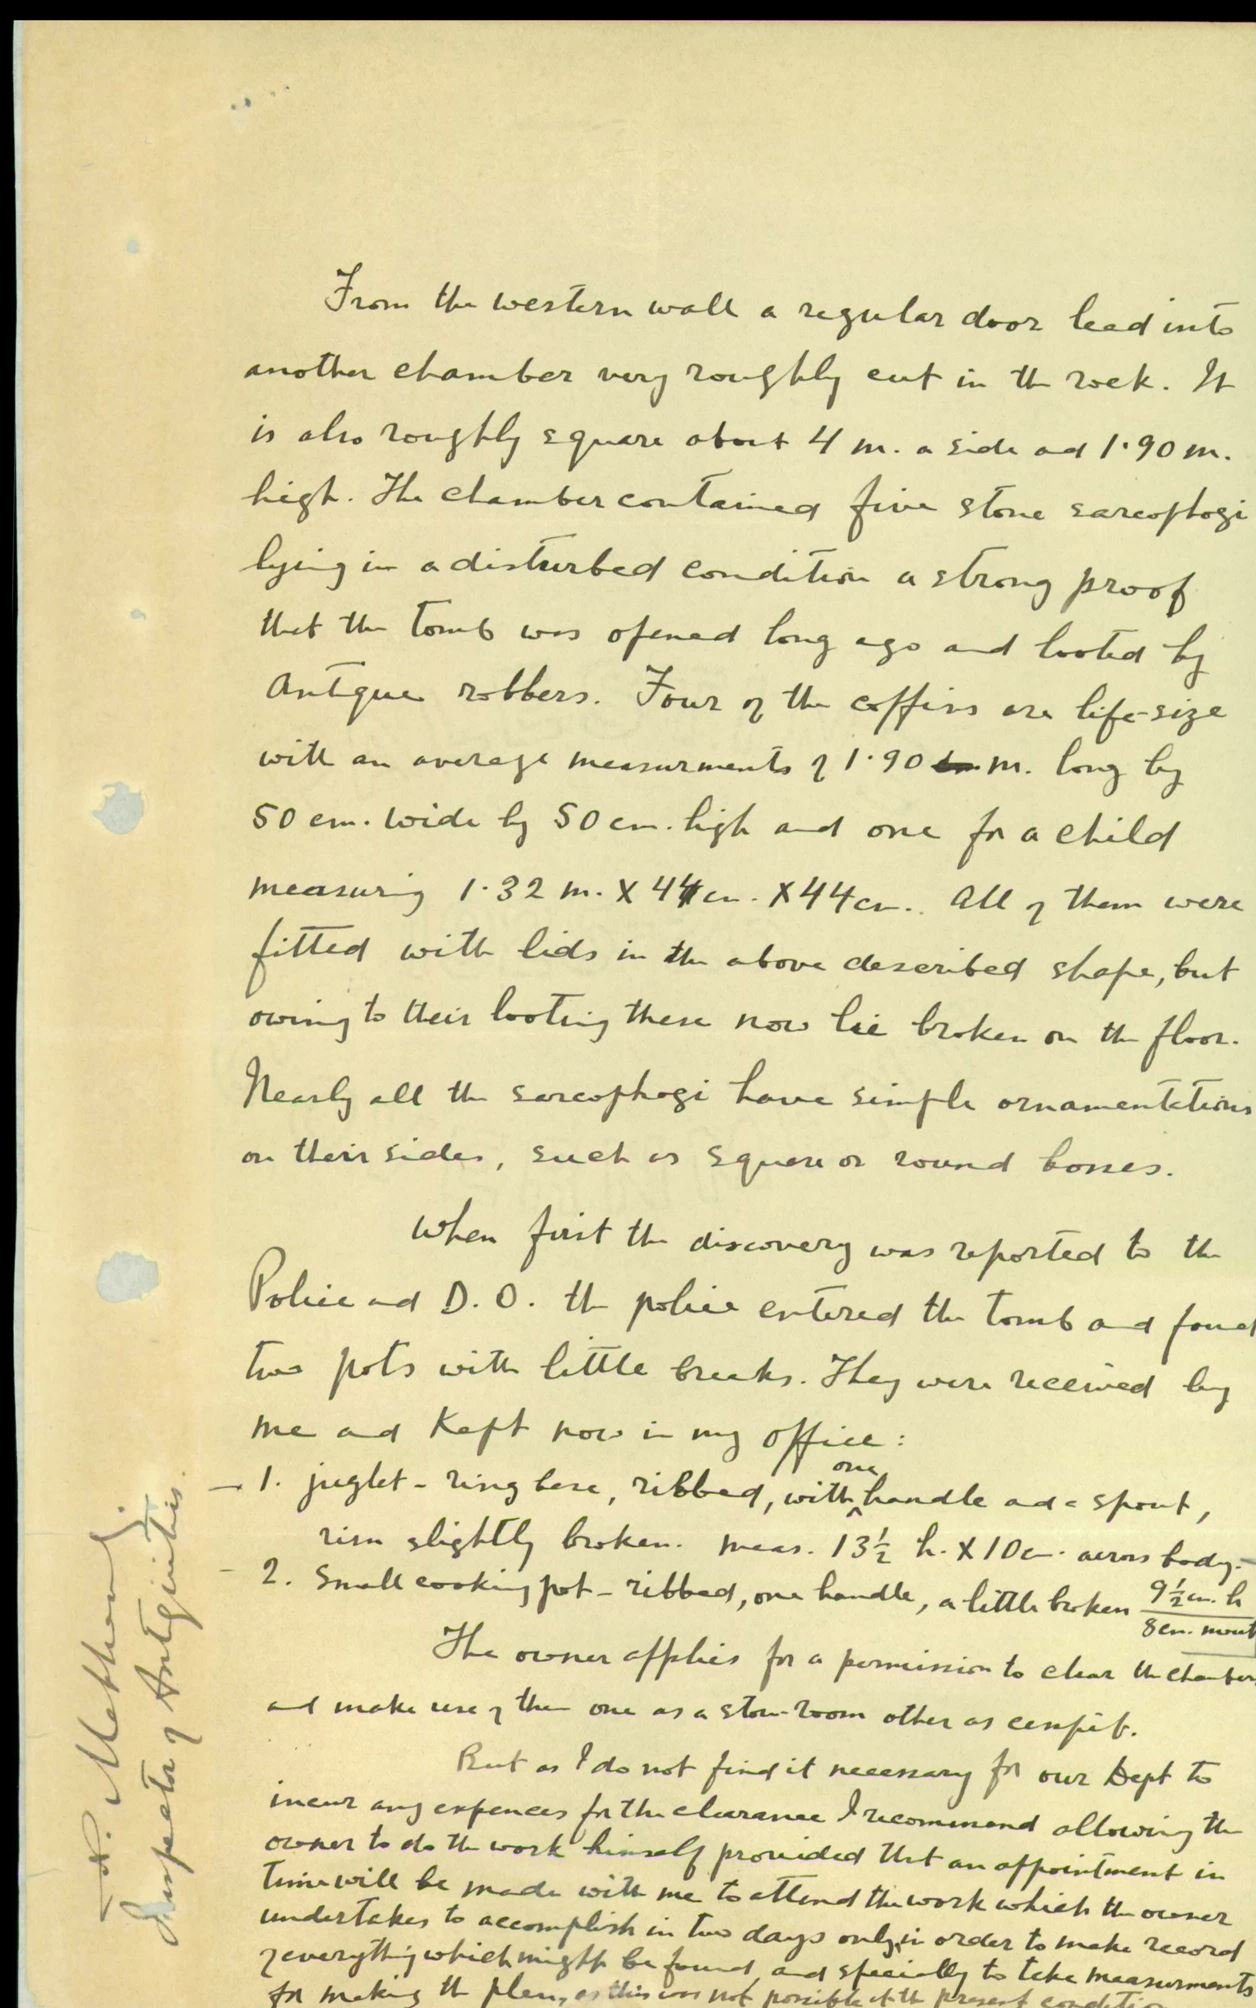 From the western wall a regular door lead into
another chamber very roughly cut in the rock. It
is also roughly square about 4 m. a side and 1.90 m.
high. The chamber contained five stone sarcophagi
lying in a disturbed condition a strong proof
that the tomb was opened long ago and looted by
Antique robbers. Four of the coffins are life-size
with an average measurments of 1.90 m. long by
50 cm. wide by 50 cm. high and one for a child
measuring 1.32 m. X 44 cm. X 44 cm. All of them were
fitted with lids in the above described shape, but
owing to their looting these now lie broken on the floor.
Nearly all the sarcophagi have simple ornamentations
on their sides, such as square or round bosses.
When first the discovery was reported to the
Police and D. O. the police entered the tomb and found
two pots with little breaks. They were received by
me and kept now in my office:
- 1. juglet - ring base, ribbed, with one handle and a spout,
rim slightly broken. meas. 13½ h. X 10 cm. across body.-
- 2. Small cooking pot - ribbed, one handle, a little broken 9½ cm. h
8 cm. mouth
The owner applies for a permission to clear the chambers
and make use of them one as a store-room other as cesspit.
But as I do not find it necessary for our Dept to
incur any expences for the clearance I recommend allowing the
owner to do the work himself provided that an appointment in
time will be made with me to attend the work which the owner
undertakes to accomplish in two days only, in order to make record
of everything which might be found, and specially to take measurments
for making the plan, as this was not possible at the present condition
N. Makhouly.
Inspector of Antiquities.